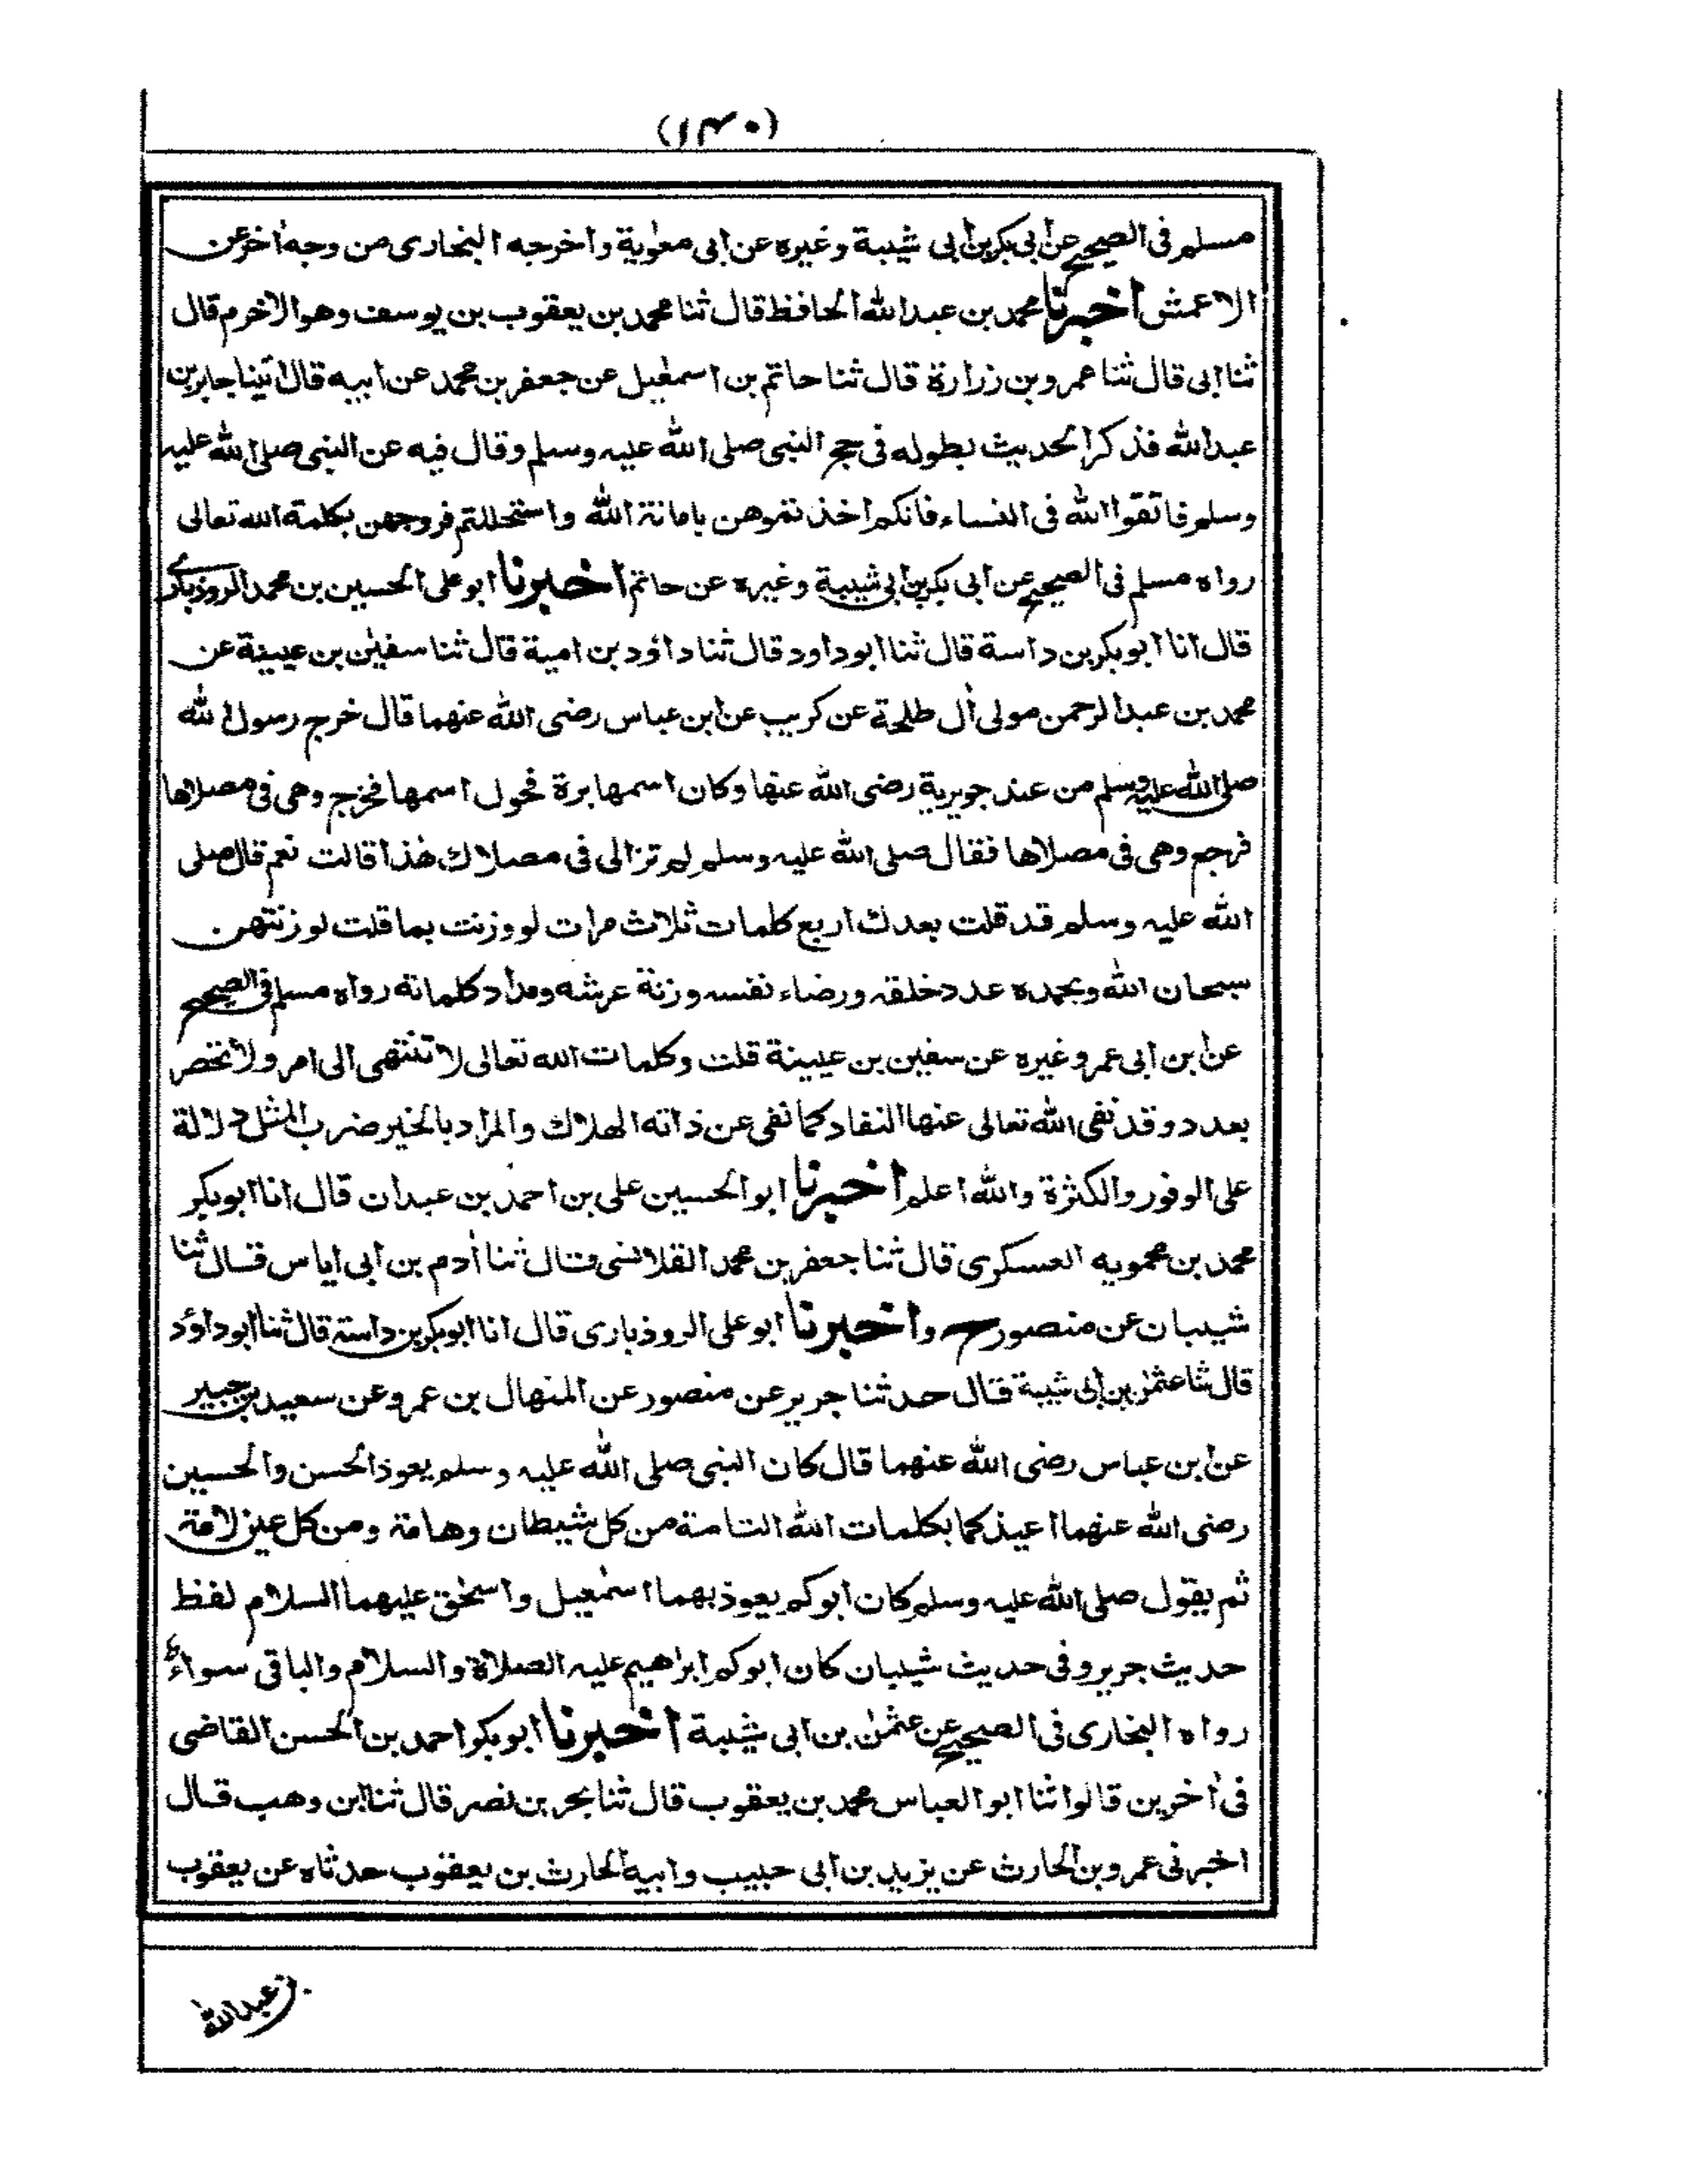 (١٤٠)
مسلم فى الصحيح عن ابى بكر بن ابى شيبة وغيره عن ابى معٰوية واخرجه البخارى من وجه اٰخر عن
الاعمش اخبرنا محمد بن عبد الله الحافظ قال ثنا محمد بن يعقوب بن يوسف وهو الاخرم قال
ثنا ابى قال ثنا عمرو بن زرارة قال ثنا حاتم بن اسمٰعيل عن جعفر بن محمد عن ابيه قال اتينا جابر بن
عبد الله فذكر الحديث بطوله فى حج النبى صلى الله عليه وسلم وقال فيه عن النبى صلى الله عليه
وسلم فاتقوا الله فى النساء فانكم اخذتموهن بامانة الله واستحللتم فروجهن بكلمة الله تعالى
رواه مسلم فى الصحيح عن ابى بكر بن ابى شيبة وغيره عن حاتم اخبرنا ابو على الحسين بن محمد الروذبارى
قال انا ابو بكر بن داسة قال ثنا ابو داود قال ثنا داؤد بن امية قال ثنا سفيٰن بن عيينة عن
محمد بن عبد الرحمن مولى اٰل طلحة عن كريب عن ابن عباس رضى الله عنهما قال خرج رسول الله
صلى الله عليه وسلم من عند جويرية رضى الله عنها وكان اسمها برة فحول اسمها فخرج وهى فى مصلاها
فرجع وهى فى مصلاها فقال صلى الله عليه وسلم لم تزالى فى مصلاك هٰذا قالت نعم قال صلى
الله عليه وسلم قد قلت بعدك اربع كلمات ثلاث مرات لو وزنت بما قلت لوزنتهن
سبحان الله وبحمده عدد خلقه ورضاء نفسه وزنة عرشه ومداد كلماته رواه مسلم فى الصحيح
عن ابن ابى عمر وغيره عن سفين بن عيينة قلت وكلمات الله تعالى لا تنتهى الى امر ولا تحصر
بعدد وقد نفى الله تعالى عنها النفاد كما نفى عن ذاته الهلاك والمراد بالخبر ضرب المثل دلالة
على الوفور والكثرة والله اعلم اخبرنا ابو الحسين على بن احمد بن عبدان قال انا ابو بكر
محمد بن محمويه العسكرى قال ثنا جعفر بن محمد القلانسى قال ثنا اٰدم بن ابى اياس قال ثنا
شيبان عن منصور ح واخبرنا ابو على الروذبارى قال انا ابو بكر بن داسة قال ثنا ابو داؤد
قال ثنا عثمٰن بن ابى شيبة قال حدثنا جرير عن منصور عن المنهال بن عمرو عن سعيد بن جبير
عن ابن عباس رضى الله عنهما قال كان النبى صلى الله عليه وسلم يعوذ الحسن والحسين
رضى الله عنهما اعيذكما بكلمات الله التامة من كل شيطان وهامة ومن كل عين لامة
ثم يقول صلى الله عليه وسلم كان ابوكم يعوذ بهما اسمٰعيل واسحٰق عليهما السلام لفظ
حديث جرير وفى حديث شيبان كان ابوكم ابراهيم عليه الصلاة والسلام والباقى سواء
رواه البخارى فى الصحيح عن عثمٰن بن ابى شيبة اخبرنا ابو بكر احمد بن الحسن القاضى
فى اٰخرين قالوا ثنا ابو العباس محمد بن يعقوب قال ثنا بحر بن نصر قال ثنا ابن وهب قال
اخبرنى عمرو بن الحارث عن يزيد بن ابى حبيب وابيه الحارث بن يعقوب حدثاه عن يعقوب
بن عبد الله